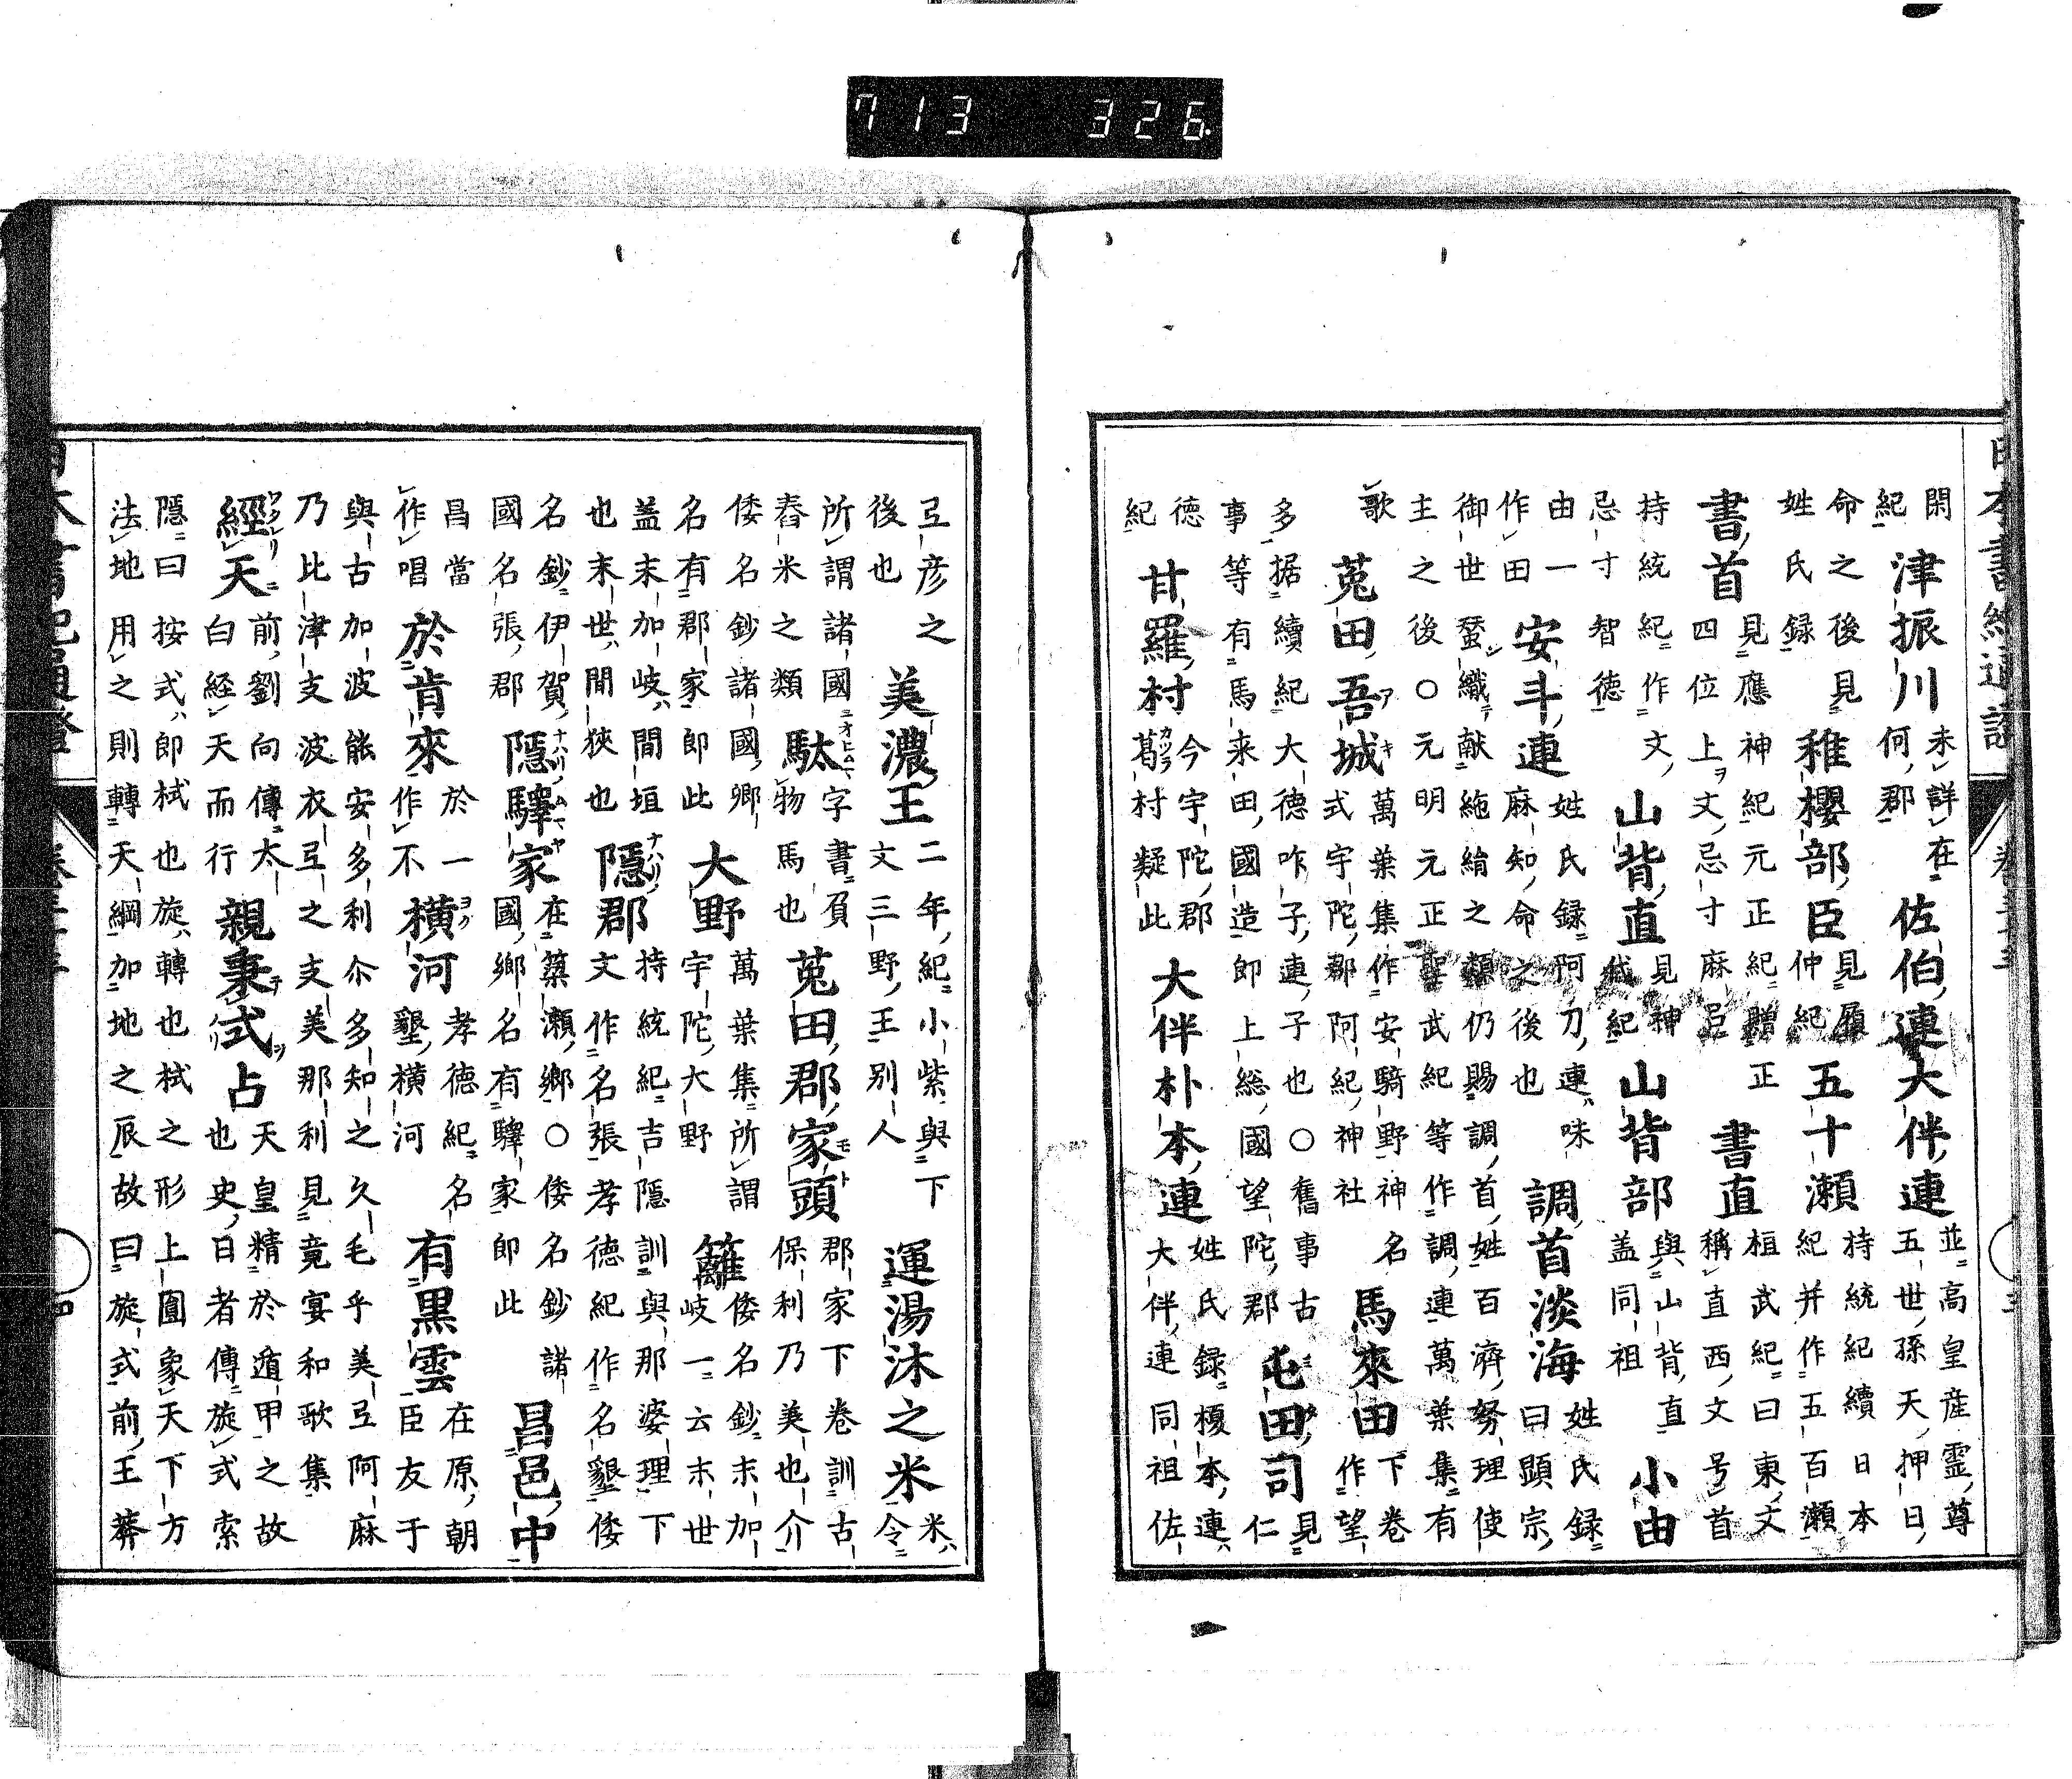 閑紀 津振川 未詳在何郡 佐伯連大伴連 並高皇産霊尊五世孫天押日
命之後見姓氏録 稚櫻部臣 見履仲紀 五十瀬 持統紀續日本紀并作五百瀬
書首 見應神紀元正紀贈正四位上文忌寸麻呂 書直 桓武紀曰東文稱直西文号首
持統紀作文忌寸智徳 山背直 見神紀 山背部 與山背直盖同祖 小由
由一作田 安斗連 姓氏録阿刀連味麻知命之後也 調首淡海 姓氏録曰顕宗
御世蚕織献絁絹之類仍賜調首姓百濟努理使
主之後○元明元正聖武紀等作調連萬葉集有
歌 菟田吾城 萬葉集作安騎野神名式宇陀郡阿紀神社 馬來田 下卷作望
多据續紀大徳咋子連子也○舊事古事等有馬来田國造即上総國望陀郡 屯田司 見仁
徳紀 甘羅村 今宇陀郡葛村疑此 大伴朴本連 姓氏録榎本連大伴連同祖佐
弖彦之後也 美濃王 二年紀小紫與下文三野王別人 運湯沐之米 米令
所謂諸國舂米之類 駄 字書負物馬也 菟田郡家頭 郡家下卷訓古保利乃美也介
倭名鈔諸國郷名有郡家即此 大野 萬葉集所謂宇陀大野 籬 倭名鈔末加岐一云末世
盖末加岐間垣也末世間狹也 隱郡 持統紀吉隱訓與那婆理下文作名張孝徳紀作名墾倭
名鈔伊賀國名張郡 隱驛家 在簗瀬郷○倭名鈔諸國郷名有驛家即此 昌邑中
昌當作唱 於肯來 於一作不 横河 孝徳紀名墾横河 有黑雲 在原朝臣友于
與古加波能安多利尓多知之久毛乎美弖阿麻
乃比津支波衣弖之支美那利見竟宴和歌集
經天 前劉向傳太白経天而行 親秉式占 天皇精於遁甲之故也史日者傳旋式索
隱曰按式即栻也旋轉也栻之形上圓象天下方
法地用之則轉天綱加地之辰故曰旋式前王莽
713 326